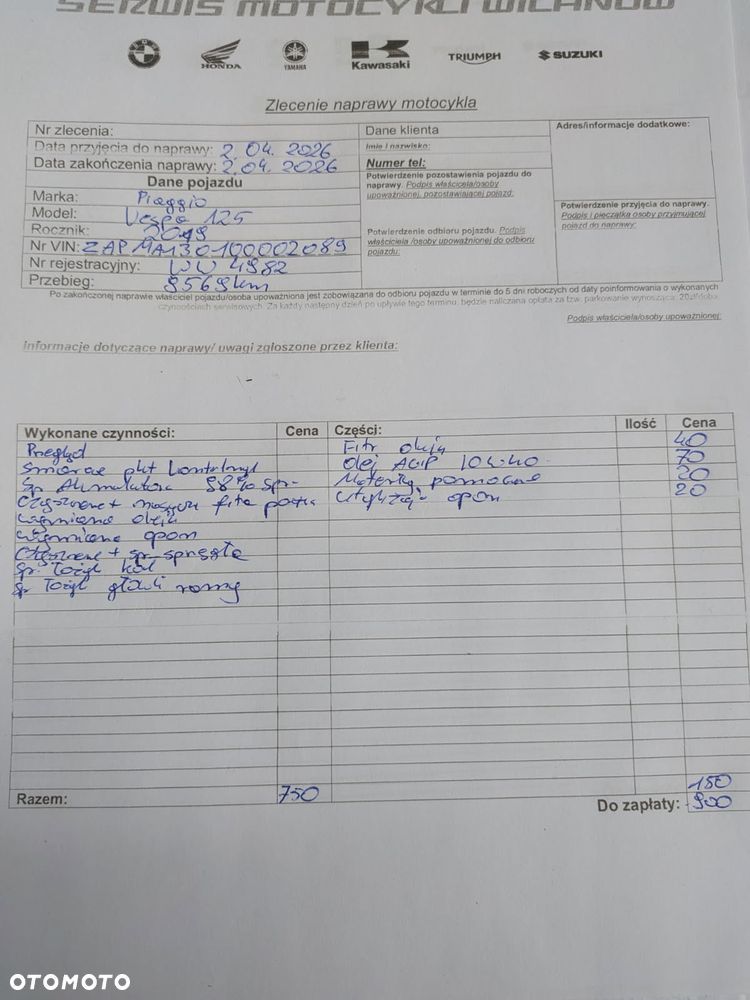 SERWIS MOTOCYKLI WILANÓW
BMW HONDA YAMAHA Kawasaki TRIUMPH SUZUKI
Zlecenie naprawy motocykla
Nr zlecenia:
Data przyjęcia do naprawy: 2.04.2026
Data zakończenia naprawy: 2.04.2026
Dane pojazdu
Marka: Piaggio
Model: Vespa 125
Rocznik: 2019
Nr VIN: ZAPMA130100002089
Nr rejestracyjny: WU 4982
Przebieg: 8569km
Dane klienta
Imię i nazwisko:
Numer tel:
Potwierdzenie pozostawienia pojazdu do
naprawy. Podpis właściciela/osoby
upoważnionej, pozostawiającej pojazd:
Potwierdzenie odbioru pojazdu. Podpis
właściciela /osoby upoważnionej do odbioru
pojazdu:
Adres/informacje dodatkowe:
Potwierdzenie przyjęcia do naprawy.
Podpis i pieczątka osoby przyjmującej
pojazd do naprawy:
Po zakończonej naprawie właściciel pojazdu/osoba upoważniona jest zobowiązana do odbioru pojazdu w terminie do 5 dni roboczych od daty poinformowania o wykonanych
czynnościach serwisowych. Za każdy następny dzień po upływie tego terminu, będzie naliczana opłata za tzw. parkowanie wynosząca: 20zł/doba.
Podpis właściciela/osoby upoważnionej:
Informacje dotyczące naprawy/ uwagi zgłoszone przez klienta:
Wykonane czynności: Cena Części: Ilość Cena
Przegląd Filtr oleju 40
smarowanie pkt kontrolnych olej AGIP 10W-40 70
Sp. Akumulatora 98% spr. Materiały pomocnicze 20
Czyszczenie + filtra utylizacja opon 20
wymiana oleju
wymiana opon
Czyszczenie + sp. sprzęgła
Sp. łożysk kół
Sp łożysk główki ramy
Razem: 750
150
Do zapłaty: 900
OTOMOTO